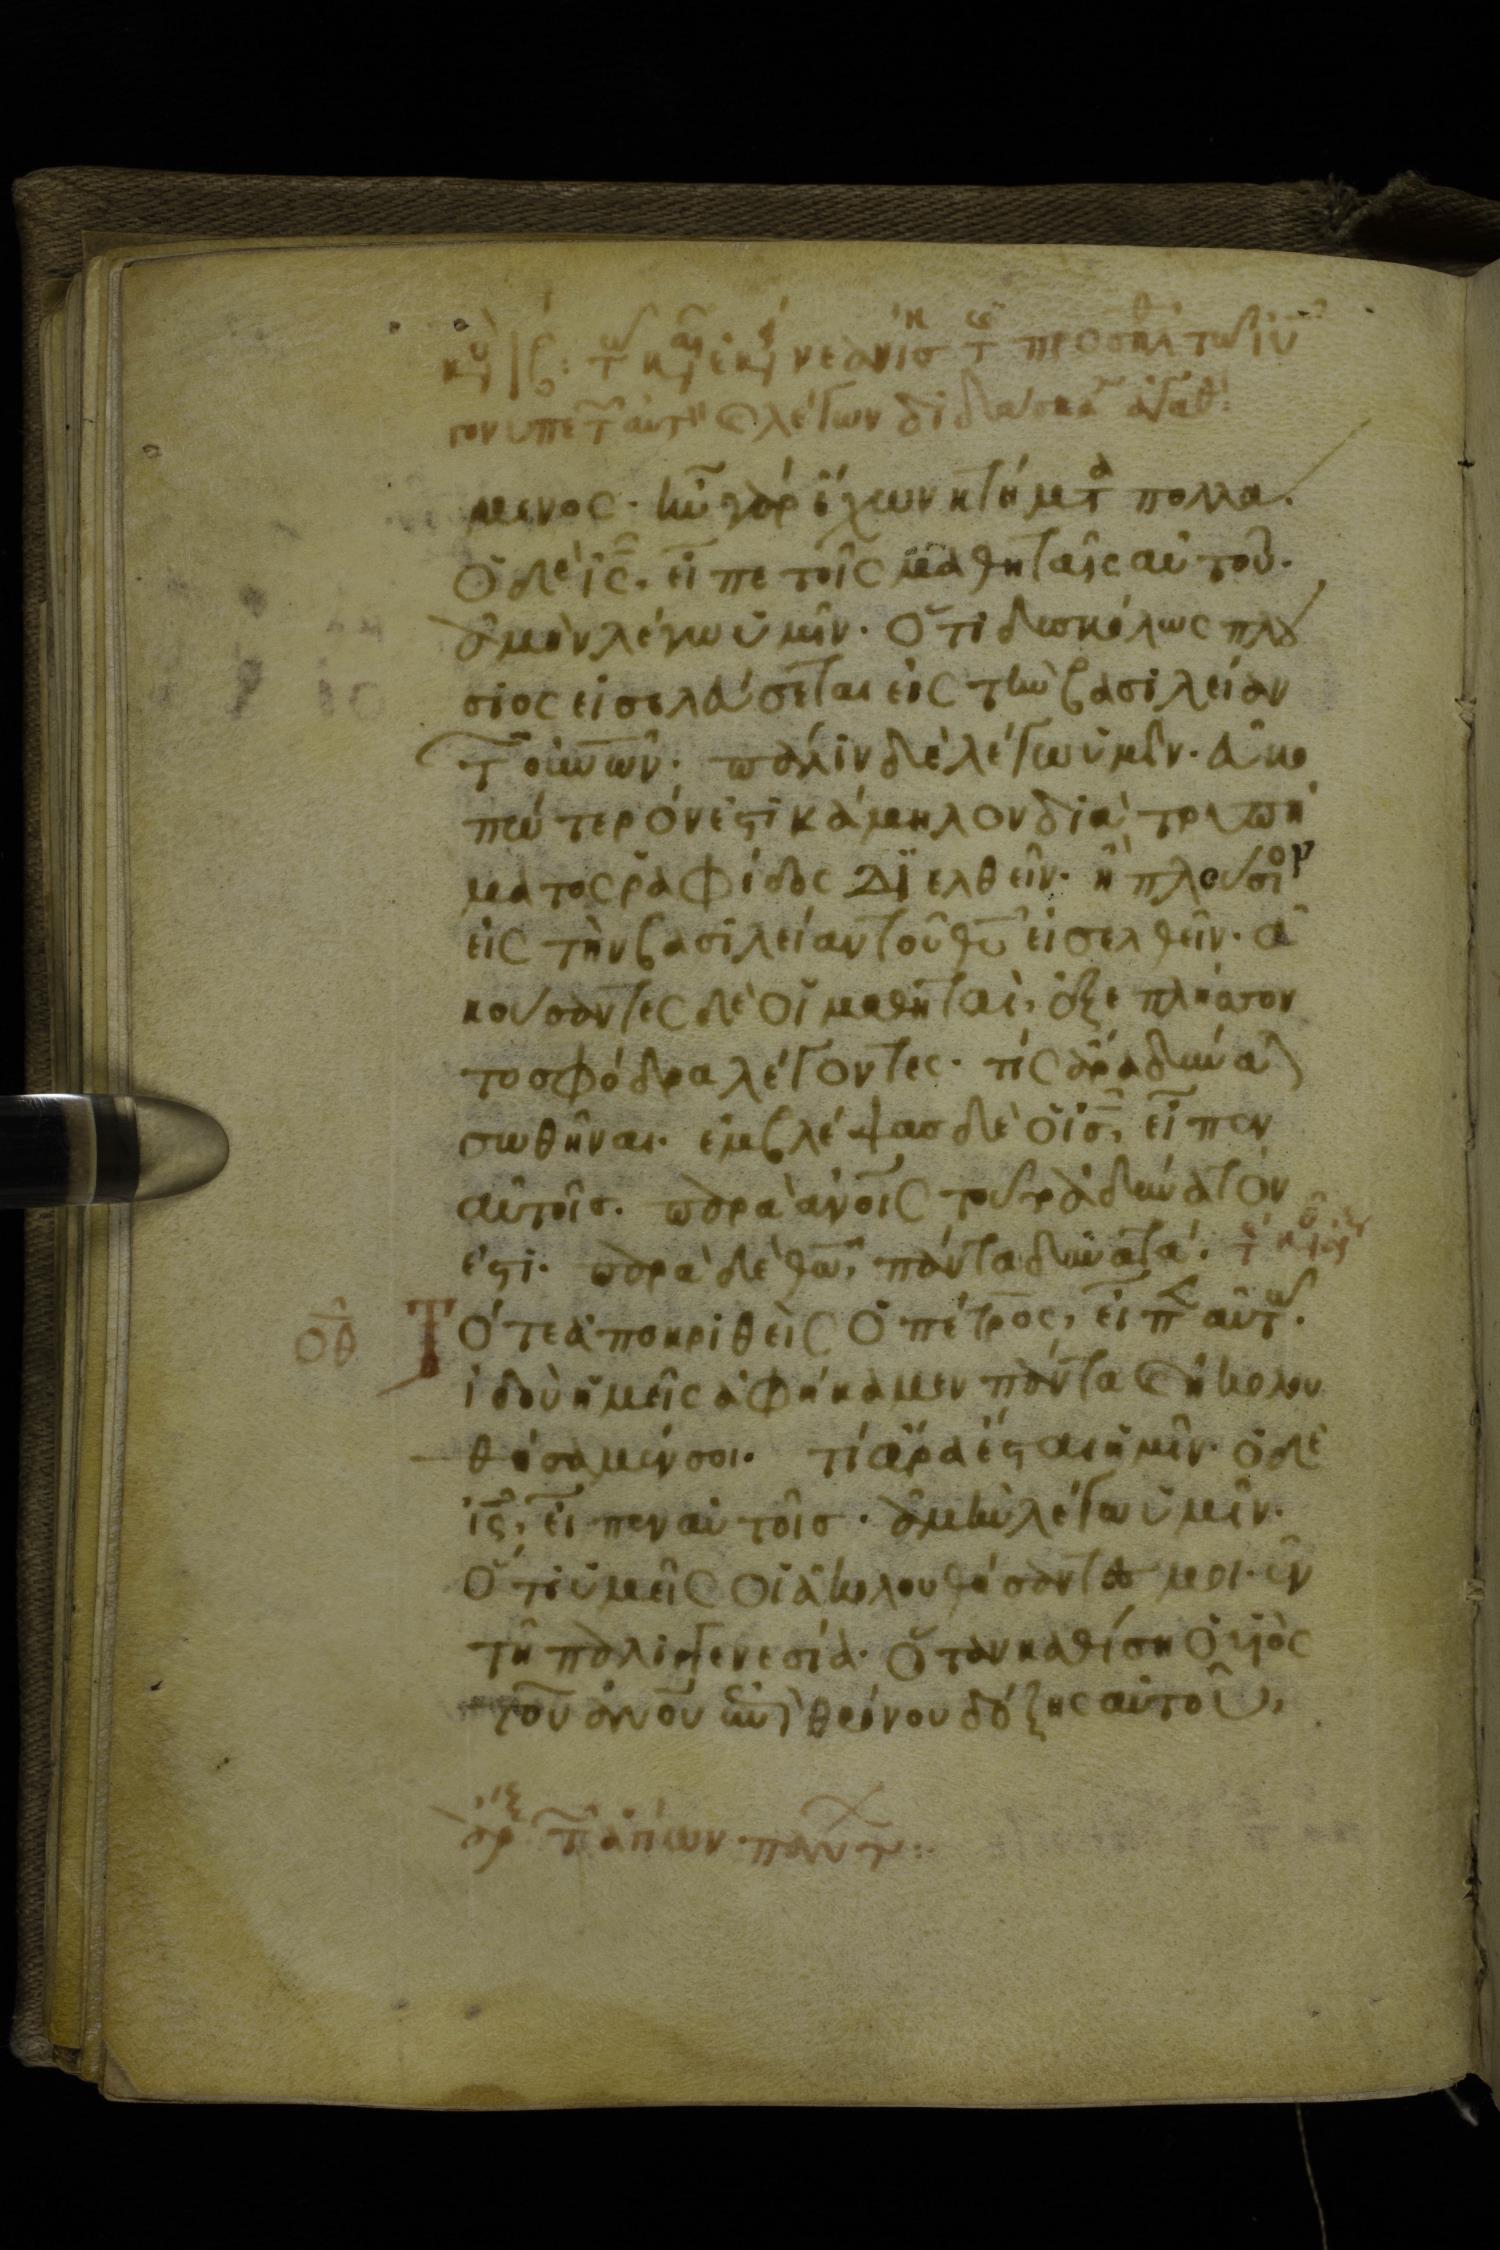 μενος· ἦν γὰρ ἔχων κτήματα πολλα.
Ὁ δὲ ις, εἶπε τοῖς μαθηταῖς αὐτοῦ.
ἀμὴν λέγω ὑμῖν· Ὅτι δυσκόλως πλου
σιος εἰσελεύσεται εἰς τὴν βασιλείαν
τῶν οὐνῶν· πάλιν δὲ λέγω ὑμῖν· εὐκο
πώτερόν ἐστι κάμηλον διὰ τρυπή
ματος ῥαφίδος διελθεῖν· ἢ πλούσιον
εἰς τὴν βασιλείαν τοῦ θυ εἰσελθεῖν· ἀ
κούσαντες δὲ οἱ μαθηταὶ, ἐξεπλήσσον
το σφόδρα λέγοντες· τίς ἄρα δύναται
σωθῆναι· ἐμβλέψας δὲ ὁ ις, εἶπεν
αὐτοῖς· παρὰ ἀνοις τοῦτο ἀδύνατόν
ἐστι· παρὰ δὲ θω, πάντα δυνατά·
οθ Τότε ἀποκριθεὶς ὁ πέτρος, εἶπεν αὐτῷ·
ἰδοὺ ἡμεῖς ἀφήκαμεν πάντα καὶ ἠκολου
θήσαμέν σοι· τί ἄρα ἔσται ἡμῖν· ὁ δὲ
ις, εἶπεν αὐτοῖς· ἀμὴν λέγω ὑμῖν·
Ὅτι ὑμεῖς οἱ ἀκολουθήσαντές μοι· ἐν
τῇ παλιγγενεσίᾳ· Ὅταν καθίσῃ ὁ υἱὸς
τοῦ ἀνου ἐπὶ θρόνου δόξης αὐτοῦ,